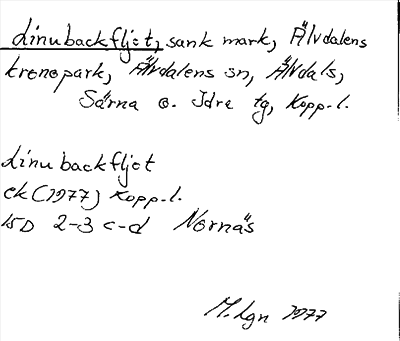 dinubackfljot, sank mark, Älvdalens
kronopark, Älvdalens sn, Älvdals,
Särna o. Idre tg, Kopp.l.
dinubackfljot
ek (1977) Kopp.l.
15D 2-3 c-d Nornäs
M.Lgn 1977